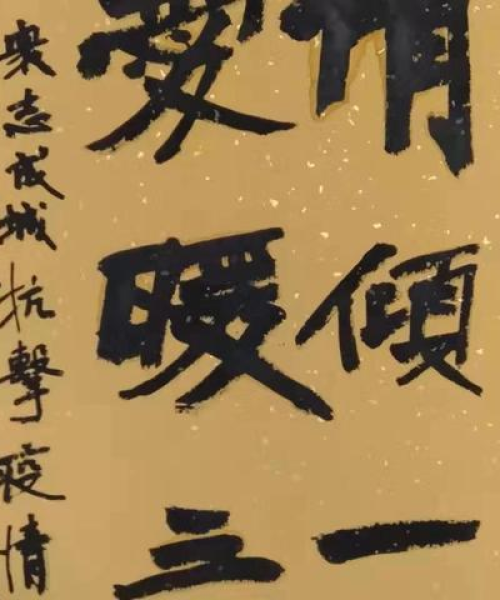 情傾一
愛暖三
衆志成城抗擊疫情